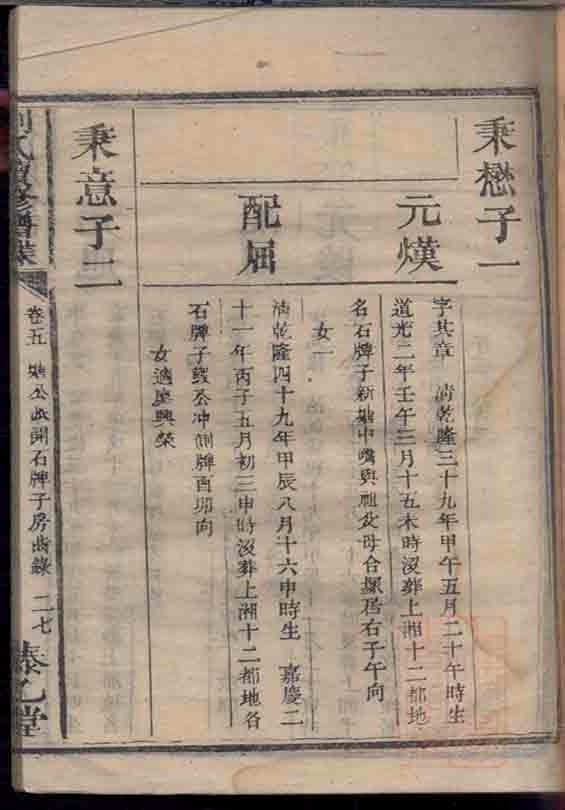 秉懋子一
元熯
字其章　清乾隆三十九年甲午五月二十午時生
道光二年壬午三月十五未時沒葬上湘十二都地
名石牌子新塘中嘴與祖父母合塚居右子午向
女一
配屈
清乾隆四十九年甲辰八月十六申時生　嘉慶二
十一年丙子五月初三申時沒葬上湘十二都地名
石牌子公冲側牌酉卯向
女適龐興榮
秉意子二
氏續修譜
卷五　公開石牌子房齒錄　二七
泰乙堂